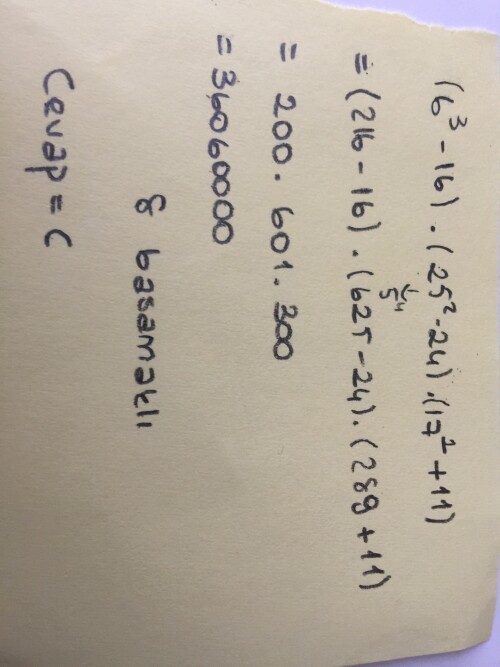 (6³ - 16) . (25² - 24) . (17² + 11)
= (216 - 16) . (625 - 24) . (289 + 11)
= 200 . 601 . 300
= 36060000
8 basamaklı
Cevap = C